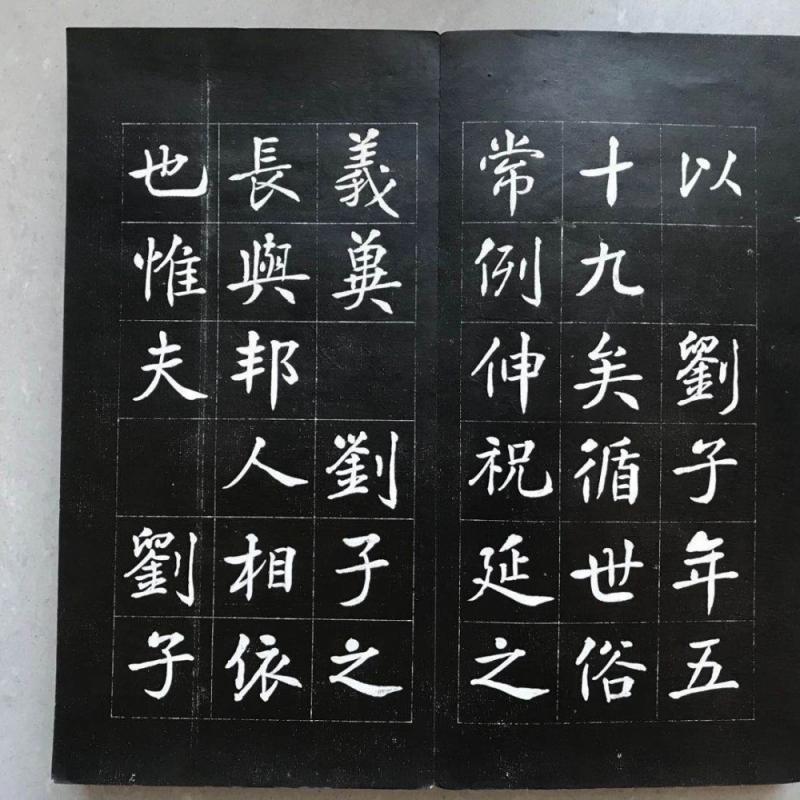 以 劉子年五
十九矣循世俗
常例伸祝延之
義冀 劉子之
長與邦人相依
也惟夫 劉子